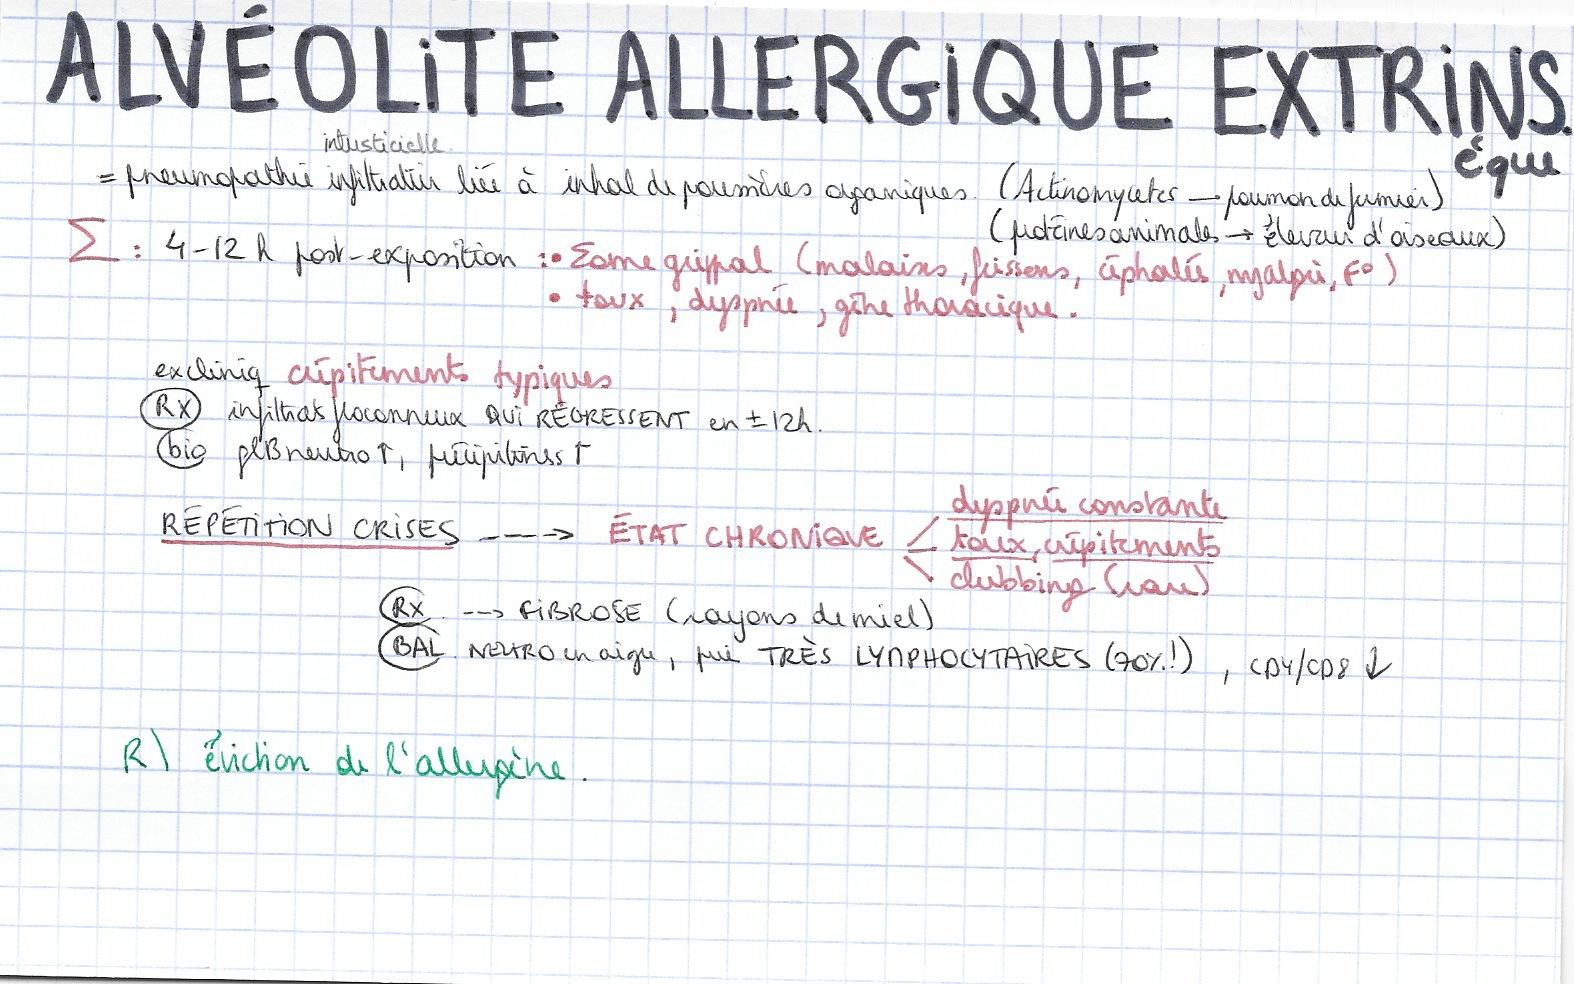 ALVÉOLITE ALLERGIQUE EXTRINS.
èque
interstitielle
= pneumopathie infiltrative liée à inhal de poussières organiques. (Actinomycetes → poumon de fumier)
(protéines animales → éleveur d'oiseaux)
Σ : 4-12 h post-exposition : • Σome grippal (malaises, frissons, céphalée, myalgie, F°)
• toux, dyspnée, gêne thoracique.
ex cliniq crépitements typiques
RX infiltrat floconneux QUI RÉGRESSENT en ± 12h.
bio glB neutro ↑, précipitines ↑
RÉPÉTITION CRISES ----> ÉTAT CHRONIQUE
dyspnée constante
toux, crépitements
clubbing (rare)
RX --> FIBROSE (rayons de miel)
BAL NEUTRO en aigu, puis TRÈS LYMPHOCYTAIRES (70%!), CD4/CD8 ↓
R) éviction de l'allergène.